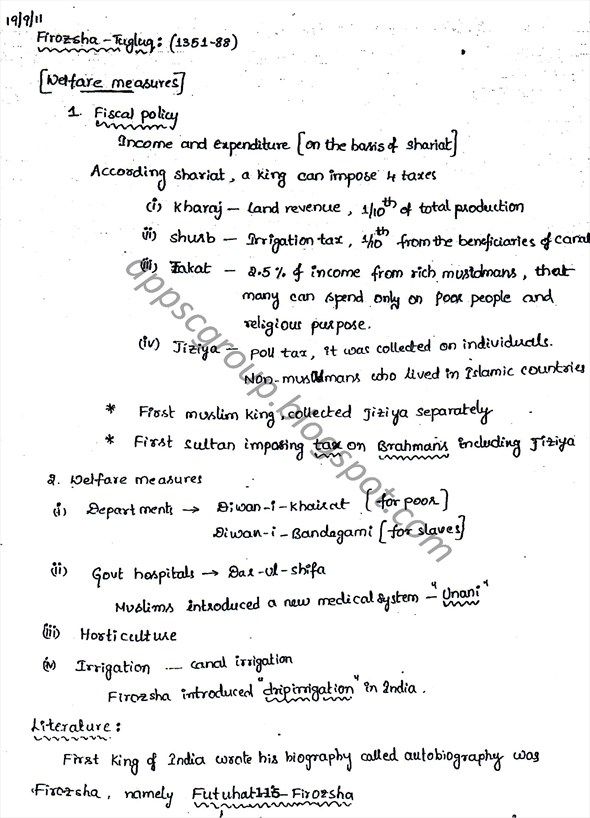 19/9/11
Firozsha - Tugluq: (1351-88)
[Welfare measures]
1. Fiscal policy
Income and expenditure [on the basis of shariat]
According shariat, a king can impose 4 taxes
(i) Kharaj - Land revenue, 1/10th of total production
(ii) shurb - Irrigation tax, 1/10th from the beneficiaries of canal
(iii) Zakat - 2.5% of income from rich muslmans, that
many can spend only on poor people and
religious purpose.
(iv) Jiziya - poll tax, it was collected on individuals.
Non-muslmans who lived in Islamic countries
* First muslim king, collected Jiziya separately
* First sultan imposing tax on Brahmans including Jiziya
2. Welfare measures
(i) Departments → Diwan-i-khairat [for poor]
Diwan-i-Bandagami [for slaves]
(ii) Govt hospitals → Dar-ul-shifa
Muslims introduced a new medical system - "Unani"
(iii) Horticulture
(iv) Irrigation - canal irrigation
Firozsha introduced "dripirrigation" in India.
Literature:
First King of India wrote his biography called autobiography was
Firozsha, namely Futuhat-Firozsha
appscgroup.blogspot.com